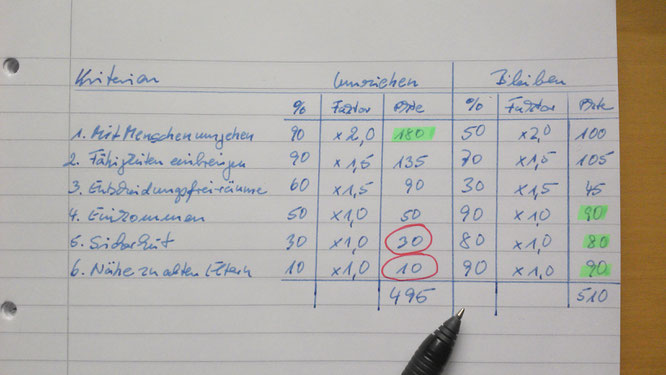 Kriterien Umziehen Bleiben
% Faktor Pkte % Faktor Pkte
1. Mit Menschen umgehen 90 x 2,0 180 50 x 2,0 100
2. Fähigkeiten einbringen 90 x 1,5 135 70 x 1,5 105
3. Entscheidungsfrei-räume 60 x 1,5 90 30 x 1,5 45
4. Einkommen 50 x 1,0 50 90 x 1,0 90
5. Sicherheit 30 x 1,0 30 80 x 1,0 80
6. Nähe zu alten Eltern 10 x 1,0 10 90 x 1,0 90
495 510